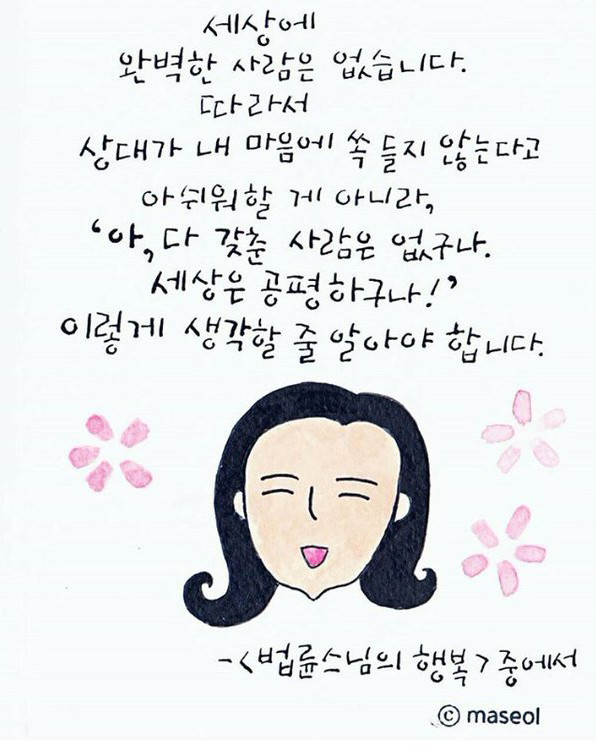 세상에
완벽한 사람은 없습니다.
따라서
상대가 내 마음에 쏙 들지 않는다고
아쉬워할 게 아니라,
'아, 다 갖춘 사람은 없구나.
세상은 공평하구나!'
이렇게 생각할 줄 알아야 합니다.
-<법륜스님의 행복> 중에서
ⓒ maseol